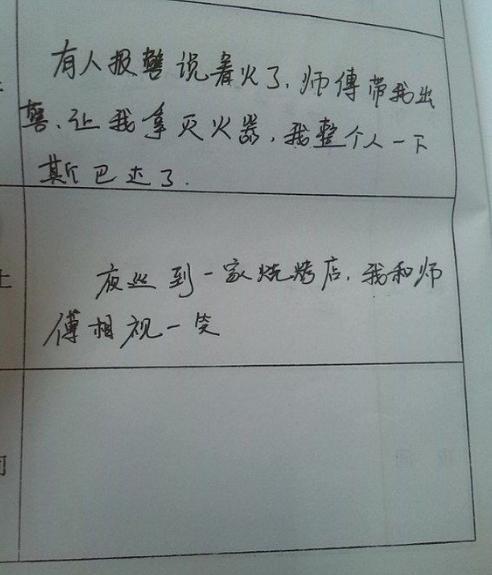 有人报警说着火了,师傅带我出
警,让我拿灭火器,我整个人一下
斯巴达了.
夜巡到一家烧烤店,我和师
傅相视一笑